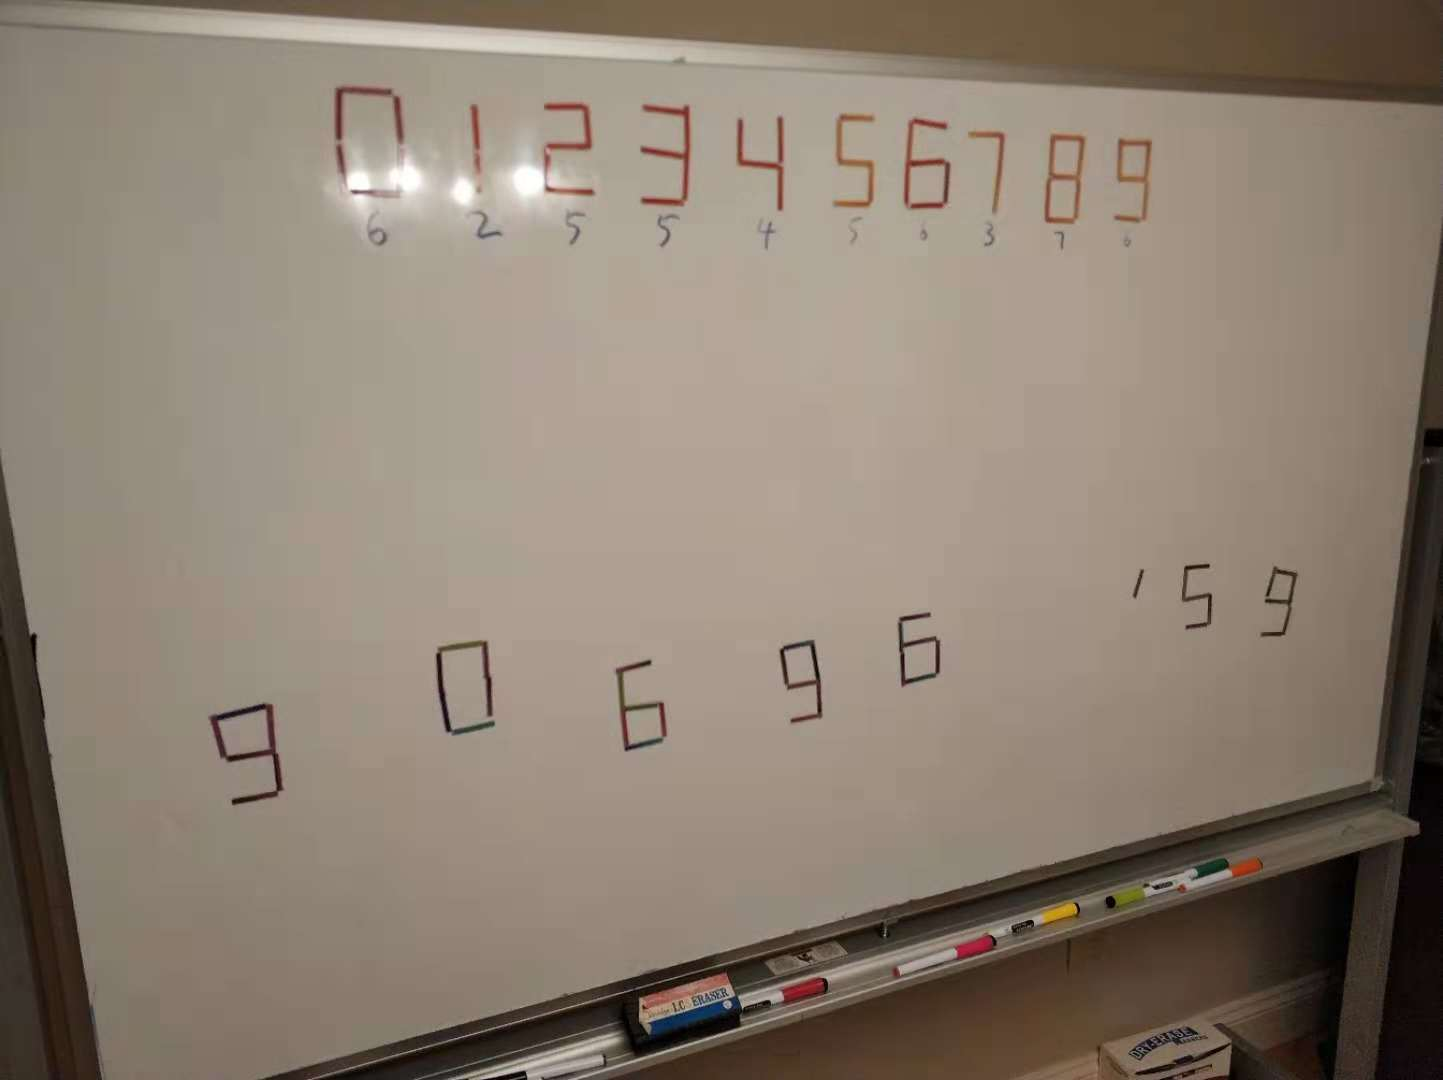 0 1 2 3 4 5 6 7 8 9
6 2 5 5 4 5 6 3 7 6
9 0 6 9 6 ' 5 9
LC ERASER
DRY-ERASE